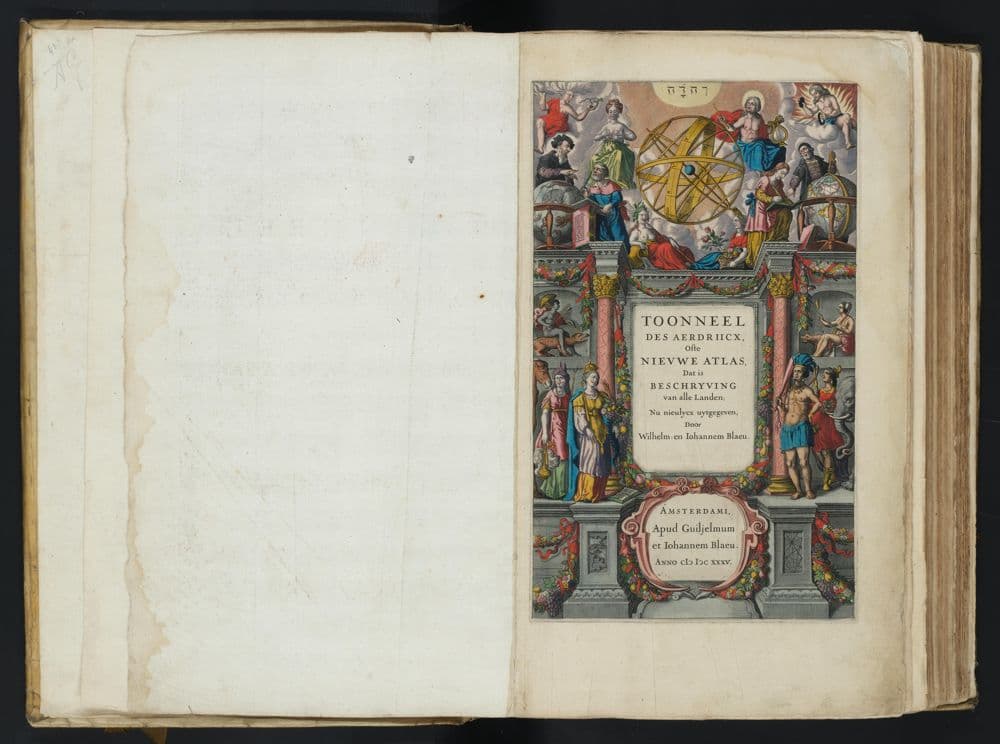 TOONNEEL
DES AERDRIICX,
Ofte
NIEVWE ATLAS,
Dat is
BESCHRYVING
van alle Landen;
Nu nieulycx uytgegeven,
Door
Wilhelm: en Iohannem Blaeu.
AMSTERDAMI,
Apud Guiljelmum
et Iohannem Blaeu.
ANNO cIↄ Iↄc XXXV.